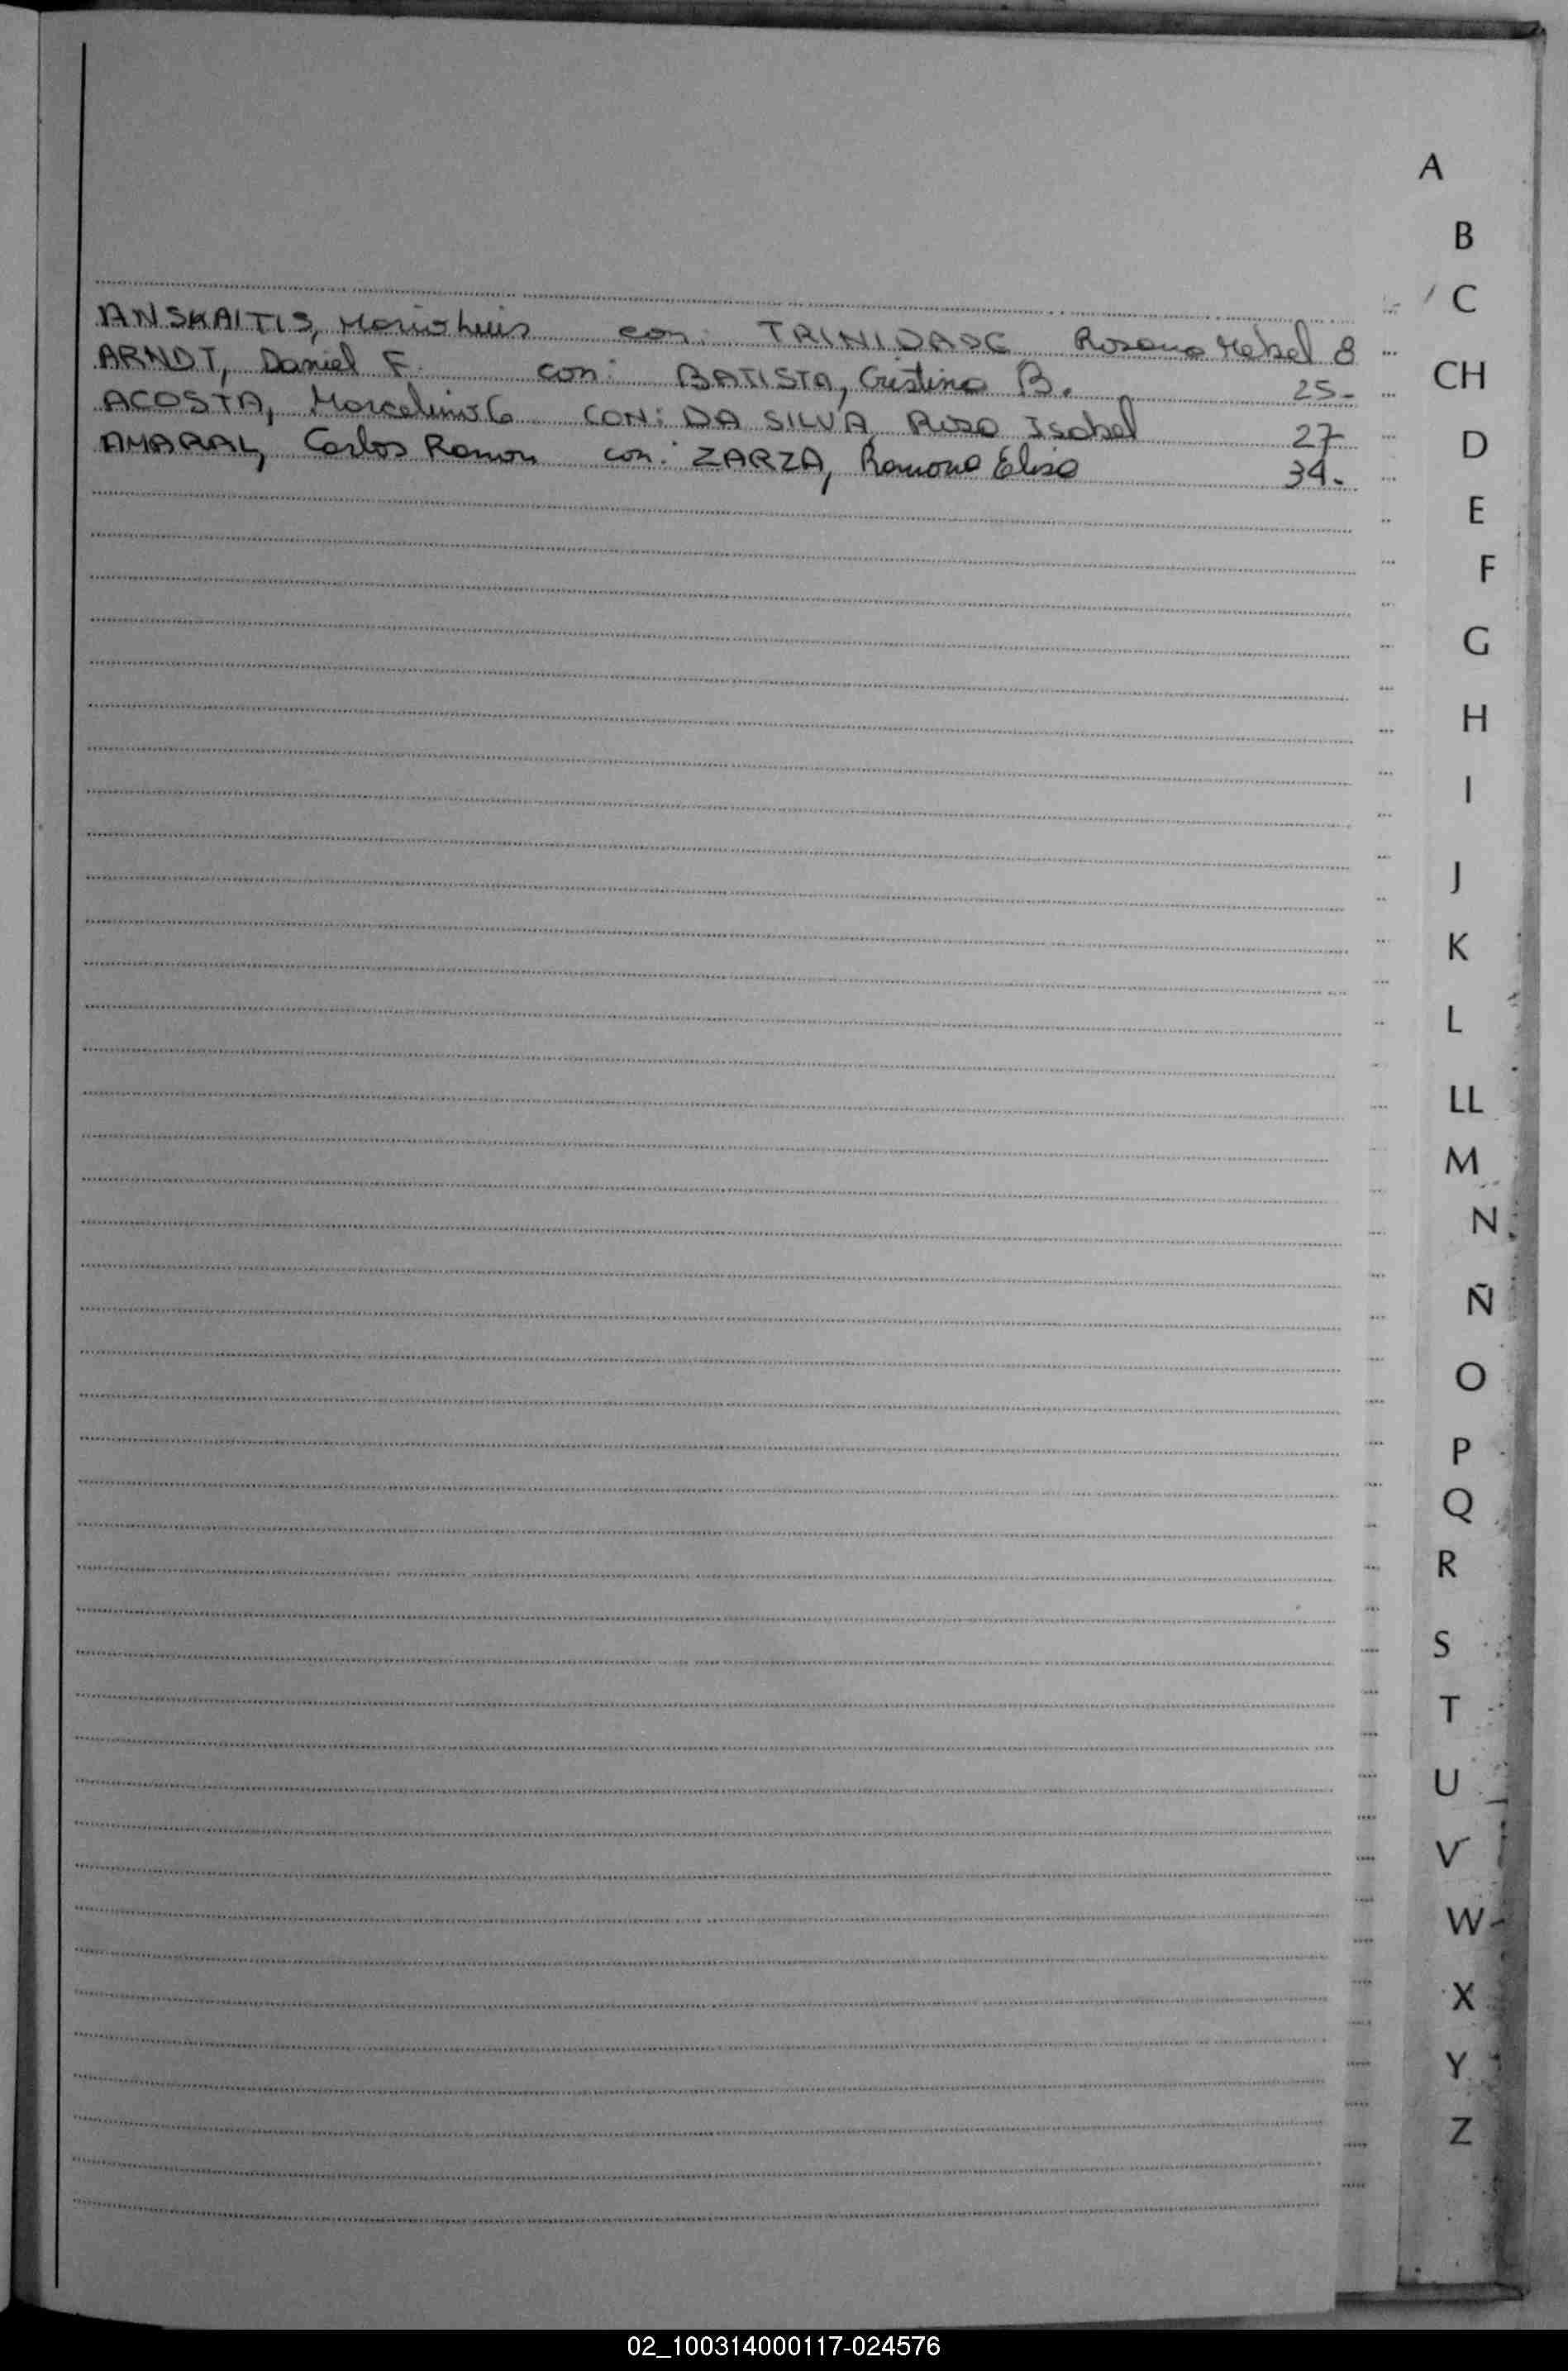 ANSKAITIS, Mario Luis con: TRINIDADE Rosana Mabel 8
ARNDT, Daniel F. con: BATISTA, Cristina B. 25-
ACOSTA, Marcelino G CON: DA SILVA Rosa Isabel 27
AMARAL, Carlos Ramon con: ZARZA, Ramona Elisa 34.
A
B
C
CH
D
E
F
G
H
I
J
K
L
LL
M
N
Ñ
O
P
Q
R
S
T
U
V
W
X
Y
Z
02_100314000117-024576